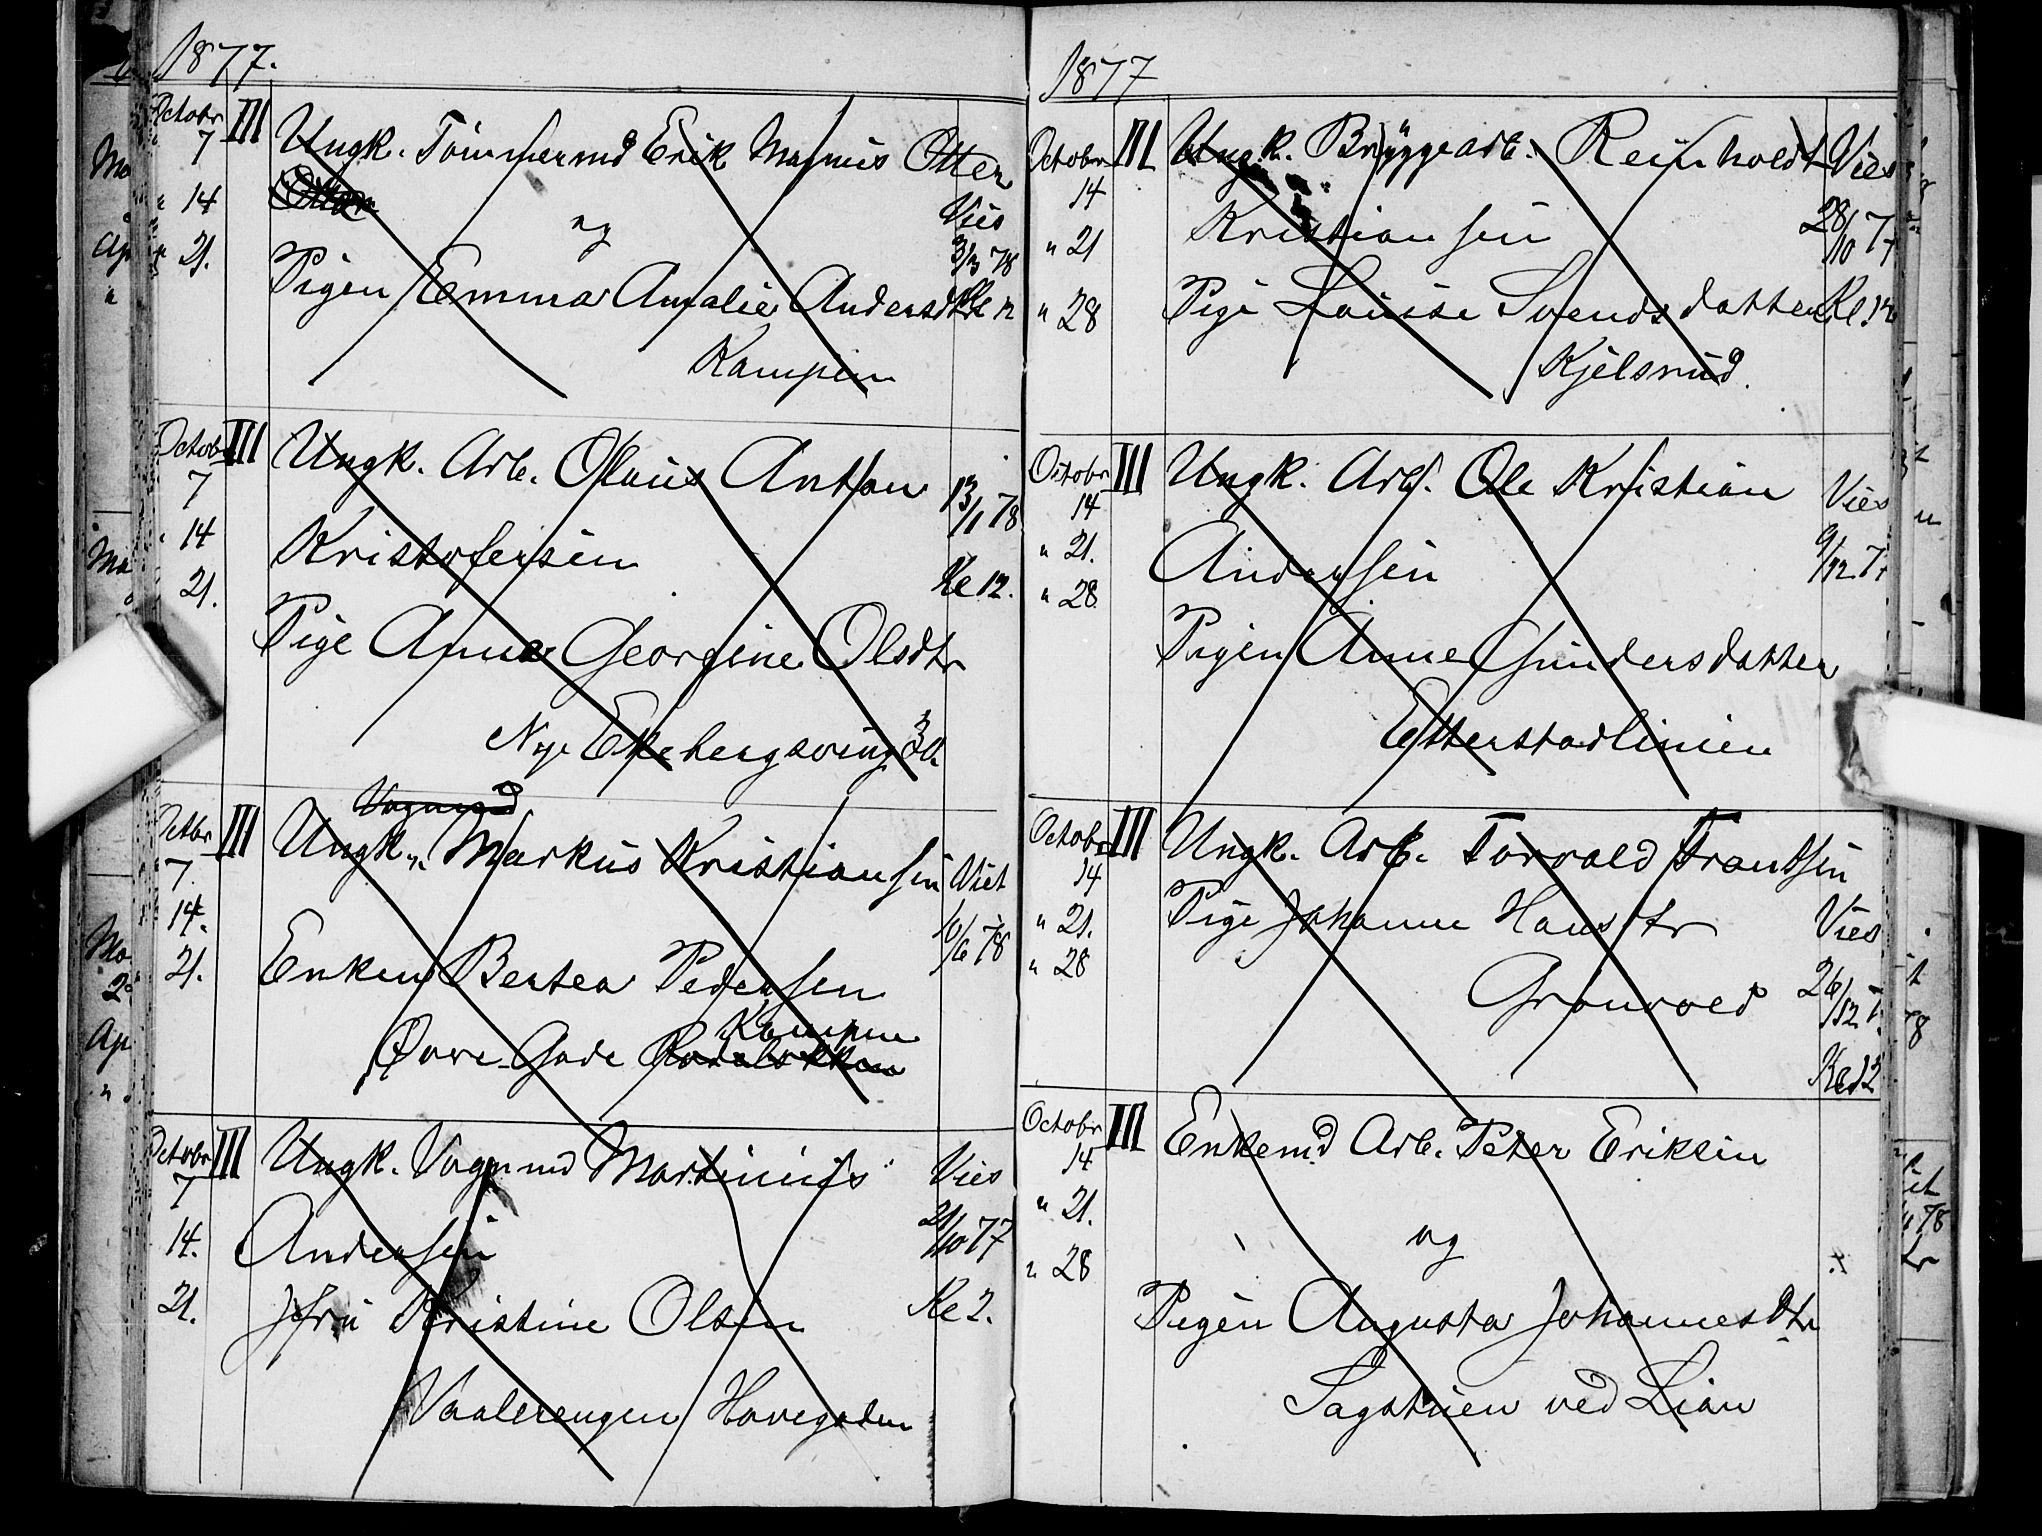 1877.
Octobr III Ungk. Tömmermd Erik Magnus Otter
7
" 14 Vies
og 3/3 78
" 21. Pigen Emma Amalie Andersdtr Kl 12
Kampen
Octobr III Ungk. Arb. Olaus Anton
7 13/1 78
" 14 Kristofersen Kl 12.
21.
Pige Anna Georgine Olsdtr
Nye Ekebergsving 30.
Vognmd
Octbr III Ungk. Markus Kristiansen Viet
7
14. /6 78
21. Enken Bertea Pedersen
Kampen
Övre Gade
Octobr III Ungk. Vognmd Martinius Vies
7 21/10 77
14. Andersen
21. Jfru Kristine Olsen Kl 2.
Vaalerengen Havegaden
1877
Octobr III Ungk. Bryggearb. Reinholdt Vies
14 28/10 77
" 21 Kristiansen
" 28 Pige Louise Svendsdatter Kl. 12
Kjelsrud.
Octobr III Ungk. Arb. Ole Kristian Vies
14 9/12 77
" 21. Andersen
" 28
Pigen Anne Gundersdatter
Etterstadlinien
Octobr III Ungk. Arb. Torvald Frantsen
14
" 21. Pige Johanne Hansdtr Vies
" 28 26/12 7
Grønvold
Kl 12
Octobr III Enkemd Arb. Peter Eriksen
14
" 21. og
" 28
Pigen Augusta Johannesdtr
Sagstuen ved Lian